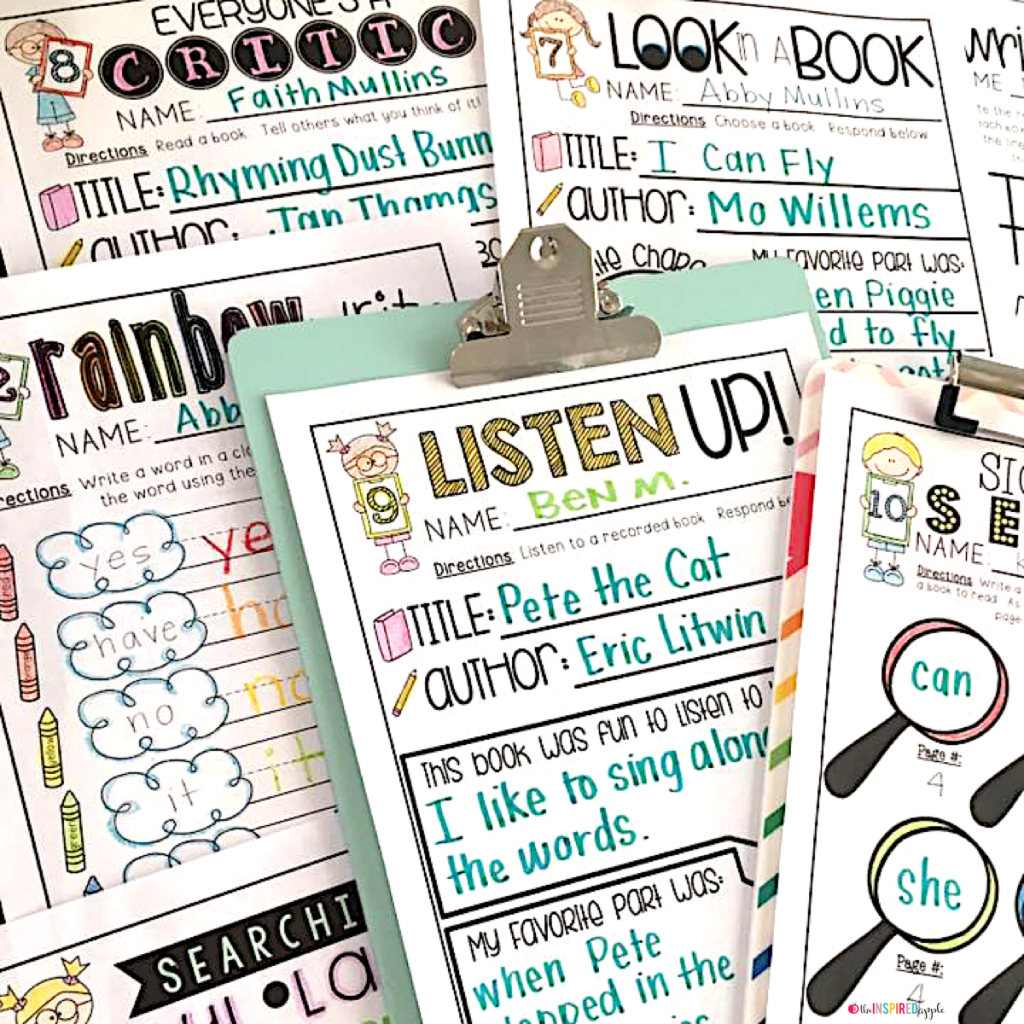 EVERYONE'S A
8
CRITIC
NAME: Faith Mullins
Directions Read a book Tell others what you think of it!
TITLE: Rhyming Dust Bunn
AUTHOR: Jan Thomas
7
LOOK in A BOOK
NAME: Abby Mullins
Directions Choose a book Respond below
TITLE: I Can Fly
AUTHOR: Mo Willems
MY FAVORITE PART WAS:
Piggie
to fly
ME
rainbow
NAME: Abb
Directions Write a word in a
the word using the
yes
have
no no
it it
red
orange
yellow
green
LISTEN UP!
9
NAME: Ben M.
Directions Listen to a recorded book Respond
TITLE: Pete the Cat
AUTHOR: Eric Litwin
THIS BOOK WAS FUN TO LISTEN TO
I like to sing along
the words.
MY FAVORITE PART WAS:
when Pete
in the
10
NAME:
Directions Write a
a book to read. As
page
can
Page #:
4
she
Page #:
4
SEARCHI
the INSPIRED apple